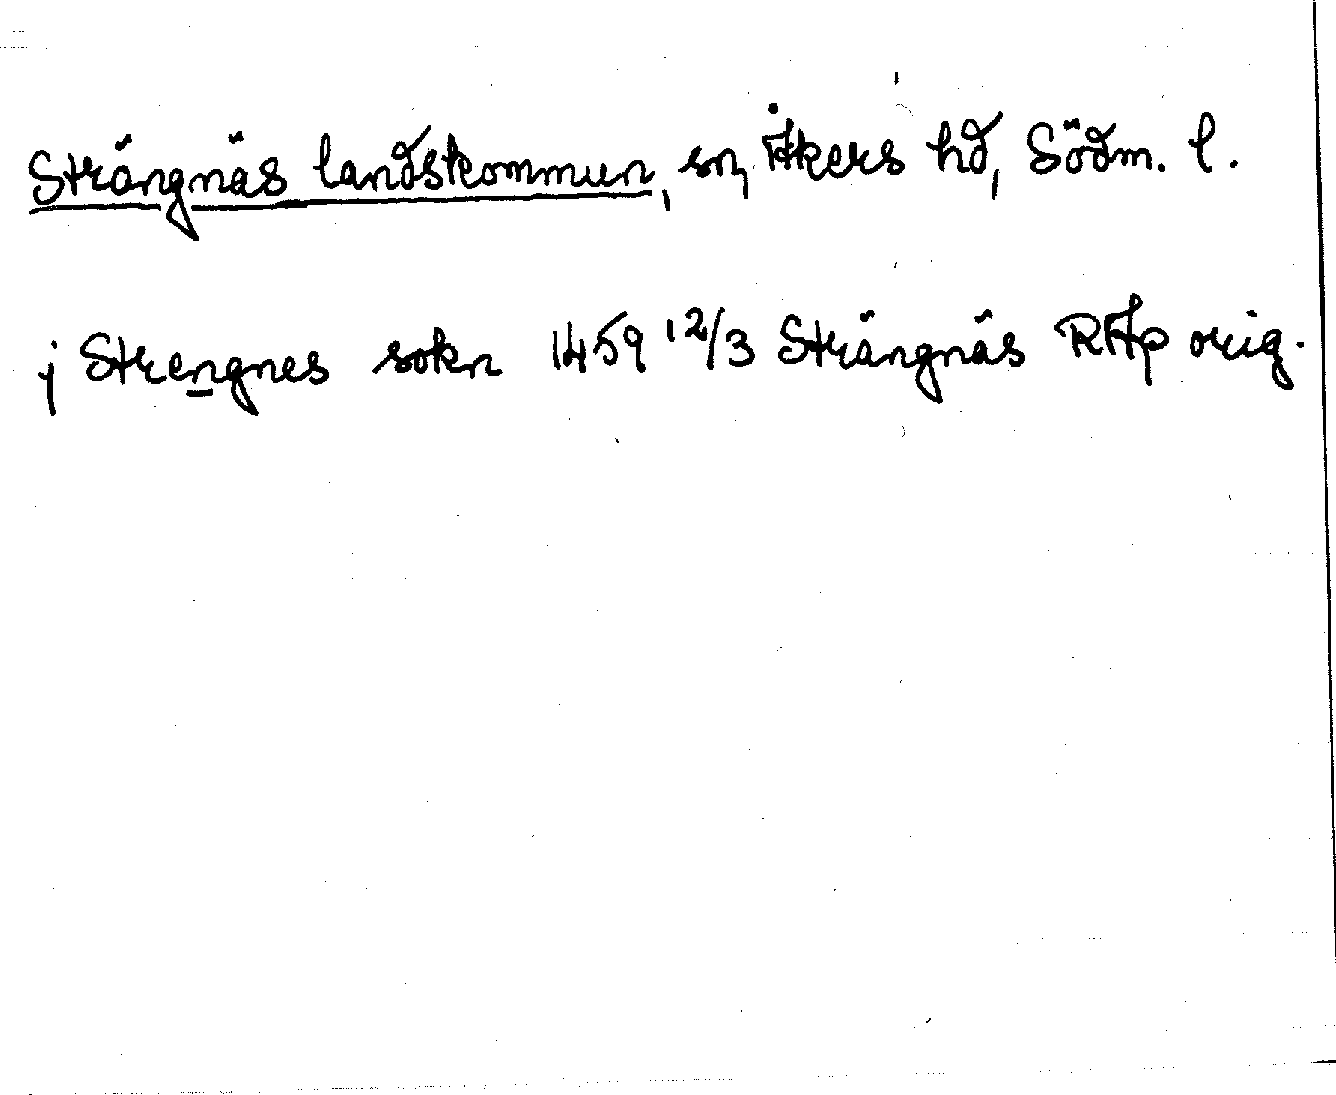 Strängnäs landskommun, sn, Åkers hd, Södm. l.
j Strengnes sokn 1459 12/3 Strängnäs RAp orig.